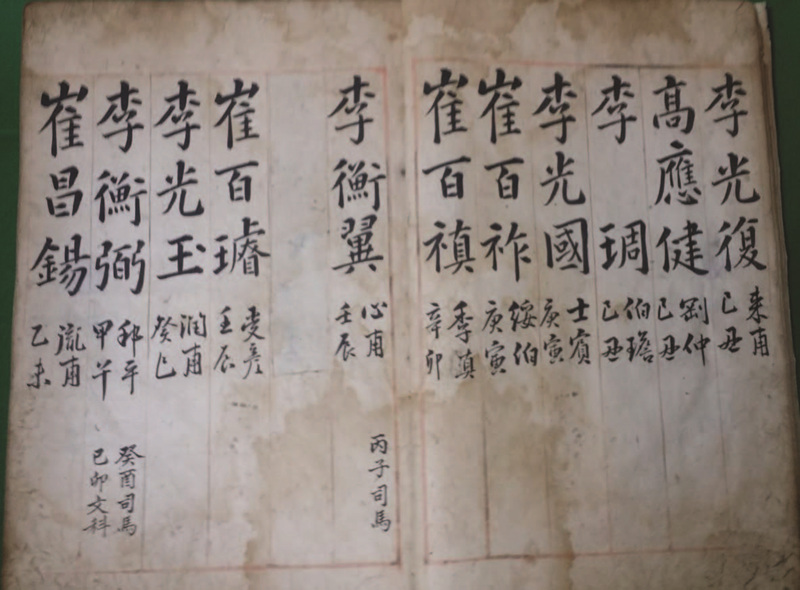 李光復 来甫 己丑
高應健 剛仲 己丑
李琱 伯瞻 己丑
李光國 士賓 庚寅
崔百祚 綏伯 庚寅
崔百禛 季眞 辛卯
李衡翼 心甫 壬辰 丙子司馬
崔百璿 壬辰
李光玉 潤甫 癸巳
李衡弼 邦平 甲午 癸酉司馬 己卯文科
崔昌錫 甫 乙未